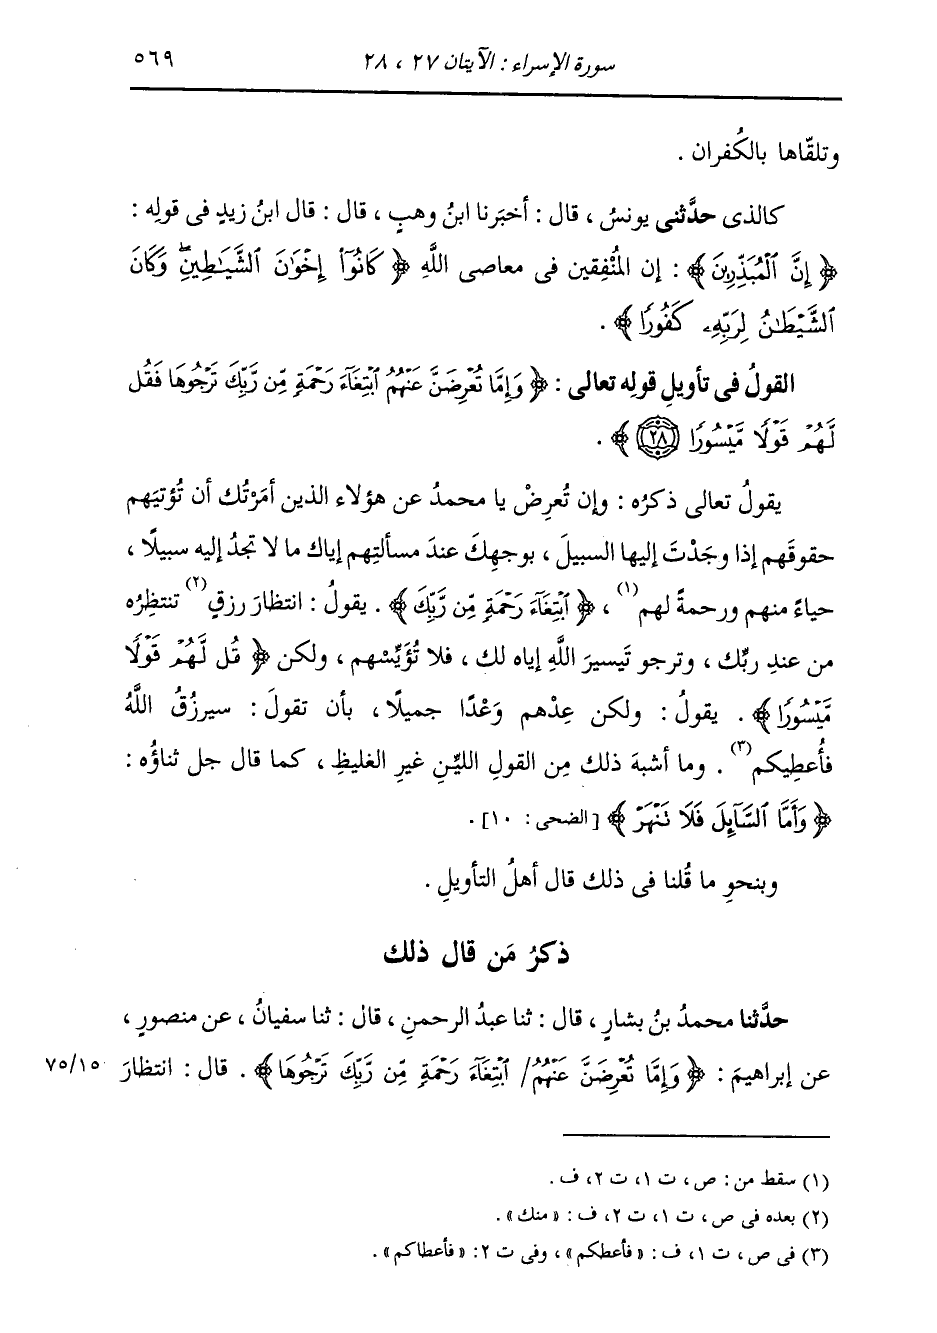 سورة الإسراء : الآيتان ٢٧ ، ٢٨
٥٦٩
وتلقّاها بالكُفران .
كالذى حدَّثنى يونسُ ، قال : أخبَرنا ابنُ وهبٍ ، قال : قال ابنُ زيدٍ فى قولِه :
﴿ إِنَّ ٱلْمُبَذِّرِينَ ﴾ : إن المُنْفِقين فى معاصى اللَّهِ ﴿ كَانُوٓا۟ إِخْوَٰنَ ٱلشَّيَـٰطِينِ ۖ وَكَانَ
ٱلشَّيْطَـٰنُ لِرَبِّهِۦ كَفُورًا ﴾ .
القولُ فى تأويلِ قولِه تعالى : ﴿ وَإِمَّا تُعْرِضَنَّ عَنْهُمُ ٱبْتِغَآءَ رَحْمَةٍ مِّن رَّبِّكَ تَرْجُوهَا فَقُل
لَّهُمْ قَوْلًا مَّيْسُورًا ٢٨ ﴾ .
يقولُ تعالى ذكرُه : وإن تُعرِضْ يا محمدُ عن هؤلاء الذين أمَرْتُك أن تُؤتيَهم
حقوقَهم إذا وجَدْتَ إليها السبيلَ ، بوجهِكَ عندَ مسألتِهم إياك ما لا تجدُ إليه سبيلًا ،
حياءً منهم ورحمةً لهم(١) ، ﴿ ٱبْتِغَآءَ رَحْمَةٍ مِّن رَّبِّكَ ﴾ . يقولُ : انتظارَ رزقٍ(٢) تنتظِرُه
من عندِ ربِّك ، وترجو تَيسيرَ اللَّهِ إياه لك ، فلا تُؤَيِّسْهم ، ولكن ﴿ قُل لَّهُمْ قَوْلًا
مَّيْسُورًا ﴾ . يقولُ : ولكن عِدْهم وَعْدًا جميلًا ، بأن تقولَ : سيرزُقُ اللَّهُ
فأُعطِيكم(٣) . وما أشبهَ ذلك مِن القولِ الليِّنِ غيرِ الغليظِ ، كما قال جل ثناؤُه :
﴿ وَأَمَّا ٱلسَّآئِلَ فَلَا تَنْهَرْ ﴾ [الضحى : ١٠] .
وبنحوِ ما قُلنا فى ذلك قال أهلُ التأويلِ .
ذكرُ مَن قال ذلك
حدَّثنا محمدُ بنُ بشارٍ ، قال : ثنا عبدُ الرحمنِ ، قال : ثنا سفيانُ ، عن منصورٍ ،
عن إبراهيمَ : ﴿ وَإِمَّا تُعْرِضَنَّ عَنْهُمُ / ٱبْتِغَآءَ رَحْمَةٍ مِّن رَّبِّكَ تَرْجُوهَا ﴾ . قال : انتظارَ
٧٥/١٥
(١) سقط من : ص ، ت ١، ت ٢، ف .
(٢) بعده فى ص ، ت ١، ت ٢، ف : « منك » .
(٣) فى ص ، ت ١، ف : « فأعطكم » ، وفى ت ٢: « فأعطاكم » .